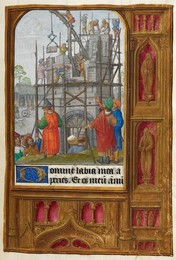 Domine labia mea a
peries. Et os meū annu